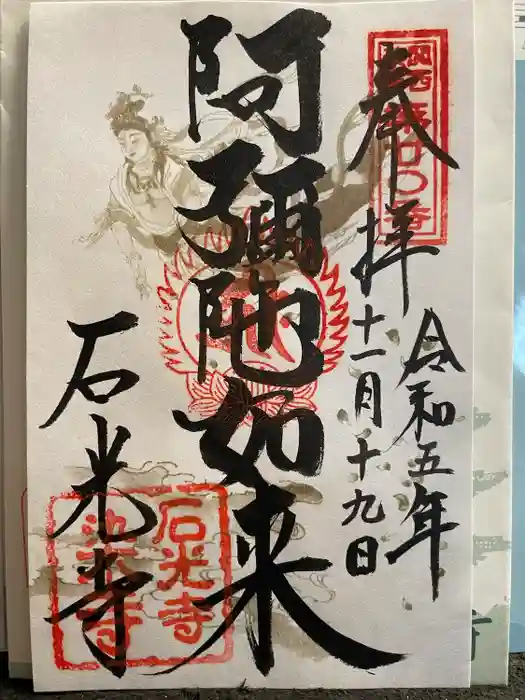 奉拝
令和五年
十一月十九日
阿彌陀如来
石光寺
石光寺
染寺